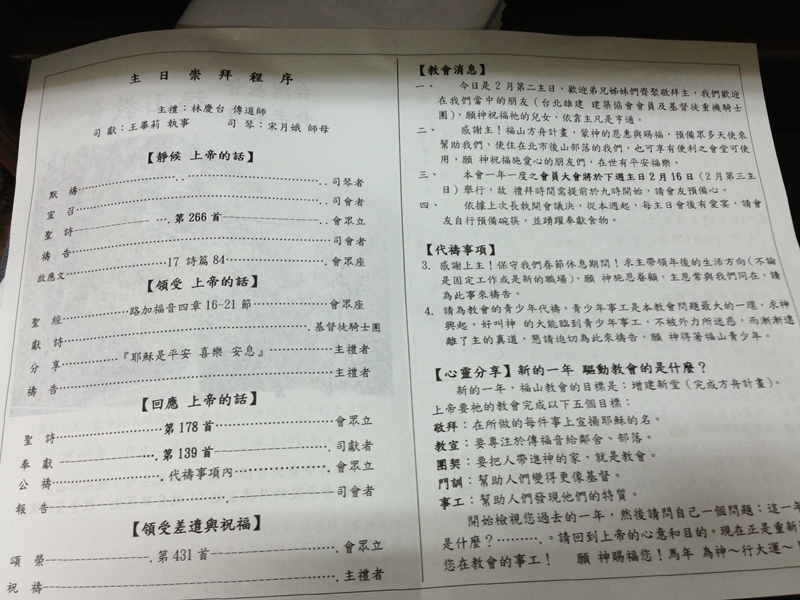 主日崇拜程序
主禮：林慶台 傳道師
司獻：王畢莉 執事　司琴：宋月娥 師母
【靜候 上帝的話】
默禱……司琴者
宣召……司會者
聖詩……第266首……會眾立
禱告……司會者
啟應文……17 詩篇84……會眾座
【領受 上帝的話】
聖經……路加福音四章16-21節……會眾座
獻詩……基督徒騎士團
分享……『耶穌是平安 喜樂 安息』……主禮者
禱告……主禮者
【回應 上帝的話】
聖詩……第178首……會眾立
奉獻……第139首……司獻者
公禱……代禱事項內……會眾立
報告……司會者
【領受差遣與祝福】
頌榮……第431首……會眾立
祝禱……主禮者
【教會消息】
一、　今日是2月第二主日，歡迎弟兄姊妹們齊聚敬拜主，我們歡迎
在我們當中的朋友（台北雄建 建築協會會員及基督徒重機騎士
團），願神祝福祂的兒女，依靠主凡是亨通。
二、　感謝主！福山方舟計畫，蒙神的恩惠與賜福，預備眾多天使來
幫助我們，使住在北市後山部落的我們，也可享有便利之會堂可使
用，願 神祝福施愛心的朋友們，在世有平安福樂。
三、　本會一年一度之會員大會將於下週主日2月16日（2月第三主
日）舉行，故 禮拜時間需提前於九時開始，請會友預備心。
四、　依據上次長執開會議決，從本週起，每主日會後有愛宴，請會
友自行預備碗筷，並踴躍奉獻食物。
【代禱事項】
3. 感謝上主！保守我們春節休息期間！求主帶領年後的生活方向（不論
是固定工作或是新的職場），願 神施恩眷顧，主恩常與我們同在，請
為此事來禱告。
4. 請為教會的青少年代禱，青少年事工是本教會問題最大的一環，求神
興起，好叫神 的大能臨到青少年事工，不被外力所迷惑，而漸漸遠
離了主的真道，懇請迫切為此來禱告，願 神得著福山青少年。
【心靈分享】新的一年 驅動教會的是什麼？
新的一年，福山教會的目標是：增建新堂（完成方舟計畫）。
上帝要祂的教會完成以下五個目標：
敬拜：在所做的每件事上宣揚耶穌的名。
教宣：要專注於傳福音給鄰舍、部落。
團契：要把人帶進神的家，就是教會。
門訓：幫助人們變得更像基督。
事工：幫助人們發現他們的特質。
開始檢視您過去的一年，然後請問自己一個問題：這一年
是什麼？………。請回到上帝的心意和目的。現在正是重新
您在教會的事工！　願 神賜福您！馬年 為神～行大運～！